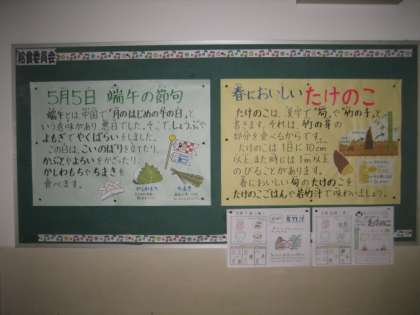 給食委員会
5月5日 端午の節句
端午とは、中国で「月のはじめの午の日」と
いう意味があり、悪日でした。そこで、しょうぶや
よもぎでやくばらいをしました。
この日は、こいのぼりを立てたり、
かぶとやよろいをかざったり、
かしわもちやちまきを
食べます。
かしわもち
ちまき
春においしい たけのこ
たけのこは、漢字で「筍」や「竹の子」と
書きます。それは、竹の芽の
部分を食べるからです。
たけのこは1日に10cm
以上、また時には1m以上
のびることがあります。
春においしい旬のたけのこを
たけのこごはんや若竹汁で味わいましょう。
若竹汁
たけのこ